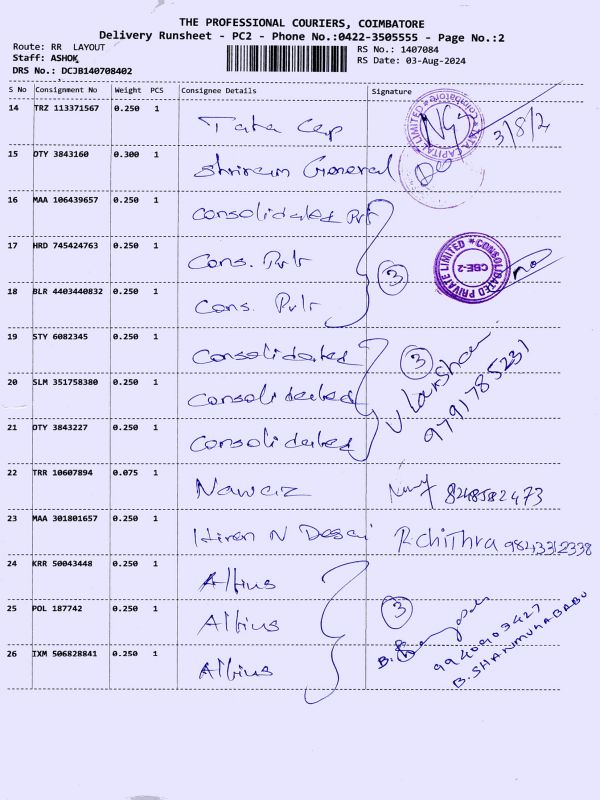 THE PROFESSIONAL COURIERS, COIMBATORE
Delivery Runsheet - PC2 - Phone No.:0422-3505555 - Page No.:2
Route: RR LAYOUT
Staff: ASHOK
DRS No.: DCJB140708402
RS No.: 1407084
RS Date: 03-Aug-2024
S No Consignment No Weight PCS Consignee Details Signature
14 TRZ 113371567 0.250 1 Tata Cap 3/8/2
TATA CAPITAL LIMITED
15 DTY 3843160 0.300 1 Shriram General
16 MAA 106439657 0.250 1 Consolidated Pvt
17 HRD 745424763 0.250 1 Cons. Pvlr 3
CONSOLIDATED PRIVATE LIMITED
CBE-2
18 BLR 4403440832 0.250 1 Cons. Pvlr
19 STY 6082345 0.250 1 Consolidated 3
20 SLM 351758380 0.250 1 Consolidated
9791785231
21 OTY 3843227 0.250 1 Consolidated
22 TRR 10607894 0.075 1 Nawaz 8248582473
23 MAA 301801657 0.250 1 Hiren N Desai R.Chithra 9843312338
24 KRR 50043448 0.250 1 Altius
25 POL 187742 0.250 1 Altius 3
9940903427
B. SHANMUHABABU
26 IXM 506828841 0.250 1 Altius